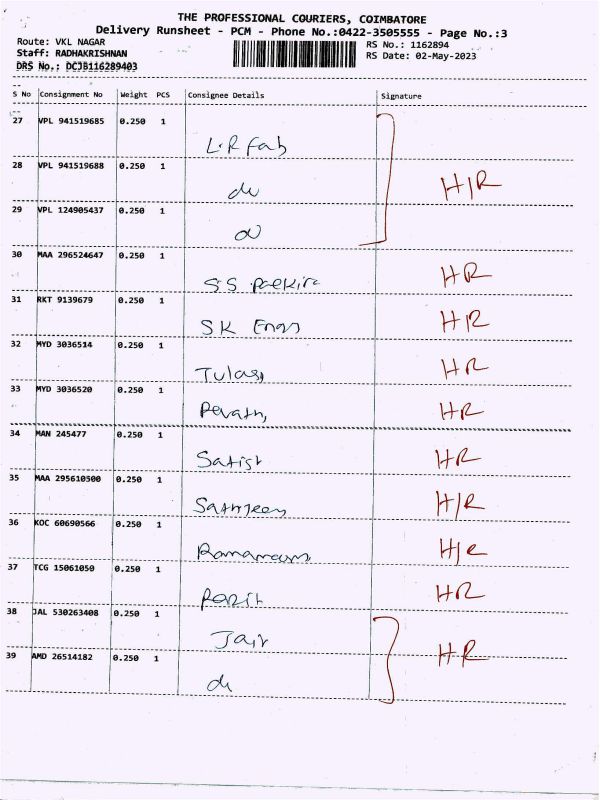 THE PROFESSIONAL COURIERS, COIMBATORE
Delivery Runsheet - PCM - Phone No.:0422-3505555 - Page No.:3
Route: VKL NAGAR
RS No.: 1162894
Staff: RADHAKRISHNAN
RS Date: 02-May-2023
DRS No.: DCJB116289403
S No Consignment No Weight PCS Consignee Details Signature
27 VPL 941519685 0.250 1 L.R Fab
28 VPL 941519688 0.250 1 do H/R
29 VPL 124905437 0.250 1 do
30 MAA 296524647 0.250 1 S.S HR
31 RKT 9139679 0.250 1 SK Engs H/R
32 MYD 3036514 0.250 1 Tulasi HR
33 MYD 3036520 0.250 1 Revathi HR
34 MAN 245477 0.250 1 Satish HR
35 MAA 295610500 0.250 1 H/R
36 KOC 60690566 0.250 1 H/R
37 TCG 15061050 0.250 1 HR
38 JAL 530263408 0.250 1 Jair HR
39 AMD 26514182 0.250 1 do